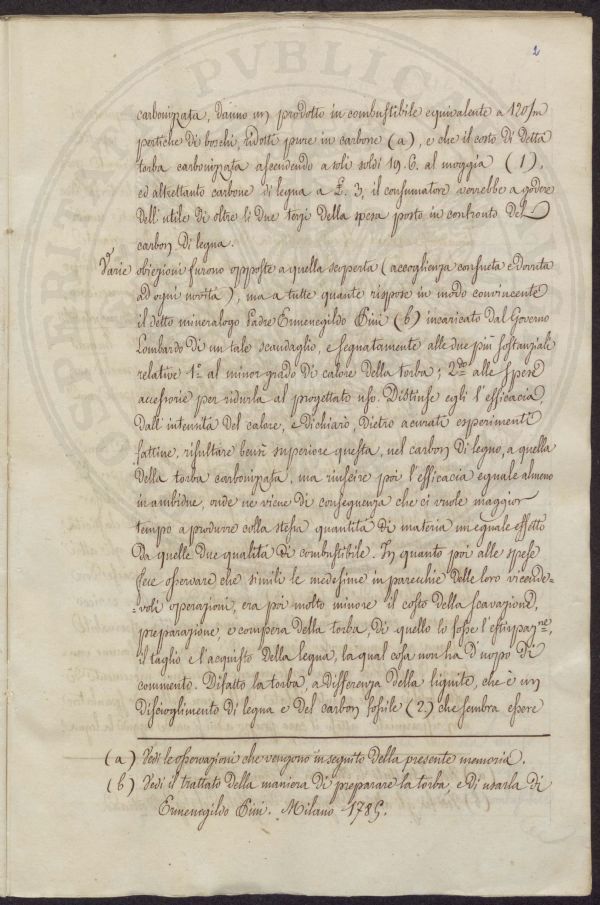 2
carbonizzata, danno un prodotto in combustibile equivalente a 120/m
pertiche di boschi, ridotti pure in carbone (a), e che il costo di detta
torba carbonizzata ascendendo a soli soldi 19.6. al moggia (1),
ed altrettanto carbone di legna a £. 3, il consumatore verrebbe a godere
dell'utile di oltre li due terzi della spesa posto in confronto del
carbon di legna.
Varie obiezioni furono opposte a quella scoperta (accoglienza consueta e dovuta
ad ogni novità), ma a tutte quante rispose in modo convincente
il detto mineralogo Padre Ermenegildo Pini (b) incaricato dal Governo
Lombardo di un tale scandaglio, e segnatamente alle due più sostanziali
relative 1.º al minor grado di calore della torba; 2.do alle spese
accessorie per ridurla al progettato uso. Distinse egli l'efficacia,
dall'intensità del calore, e dichiarò, dietro acurati esperimenti
fattine, risultare bensì superiore questa, nel carbon di legno, a quella
della torba carbonizzata, ma riuscire poi l'efficacia eguale almeno
in ambidue, onde ne viene di conseguenza che ci vuole maggior
tempo a produrre colla stessa quantità di materia un eguale effetto
da quelle due qualità di combustibile. In quanto poi alle spese
fece osservare che simili le medesime in parecchie delle loro vicende-
=voli operazioni, era poi molto minore il costo della scavazione,
preparazione, e compera della torba, di quello lo fosse l'estirpaz.ne,
il taglio e l'acquisto della legna, la qual cosa non ha d'uopo di
commento. Difatto la torba, a differenza della lignite, che è un
discioglimento di legna e del carbon fossile (2) che sembra essere
(a) Vedi le osservazioni che vengono in seguito della presente memoria.
(b) Vedi il trattato della maniera di preparare la torba, e di usarla di
Ermenegildo Pini. Milano 1785.
PVBLIC